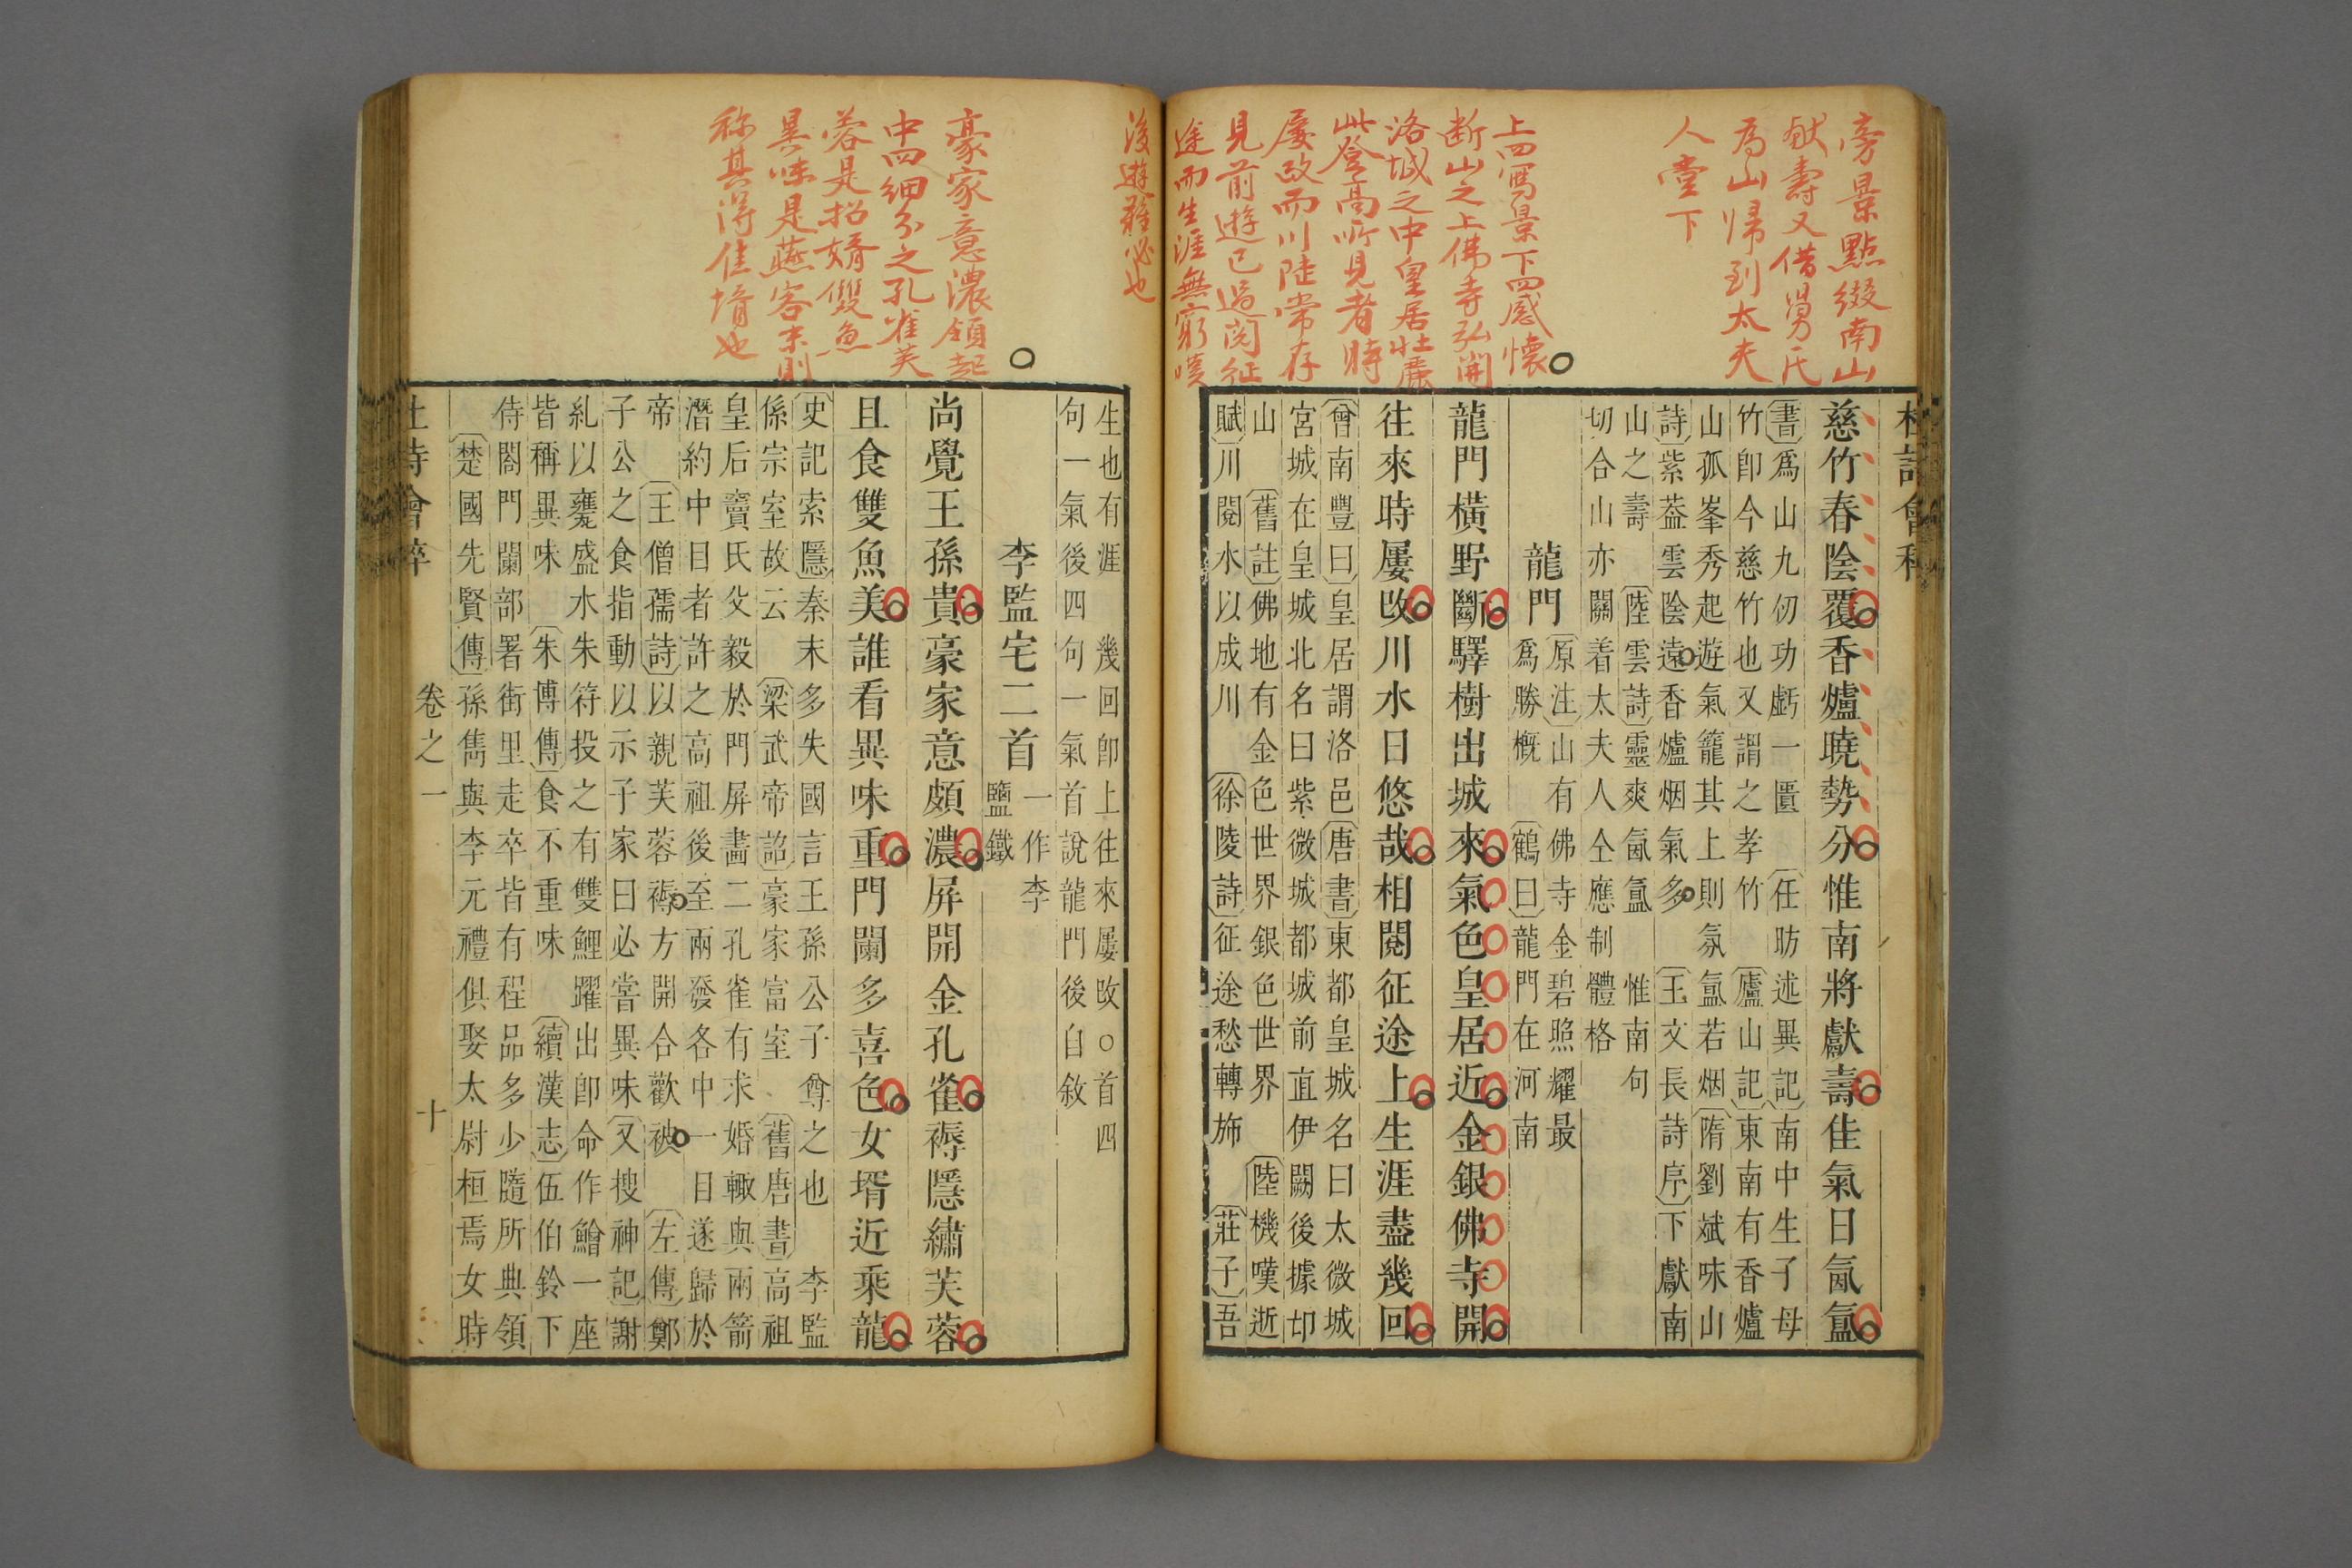 旁景點綴南山
獻壽又借舅氏
為山歸到太夫
人堂下
上四寫景下四感懷
断山之上佛寺弘開
洛城之中皇居壯麗
此登高所見者時
屢改而川陸常存
見前遊已過閱征
途而生涯無窮嘆
後遊難必也
豪家意濃領起
中四細分之孔雀芙
蓉是招婿雙魚
異味是燕客末則
称其得佳壻也
杜詩會稡
慈竹春陰覆香爐曉勢分惟南將獻壽佳氣日氤氳
書爲山九仞功虧一匱 任昉述異記南中生子母
竹卽今慈竹也又謂之孝竹 廬山記東南有香爐
山孤峯秀起遊氣籠其上則氛氳若烟隋劉斌味山
詩紫葢雲陰遠香爐烟氣多 王文長詩序下獻南
山之壽 陸雲詩靈爽氤氳 惟南句
切合山亦關着太夫人仝應制體格
龍門
原注山有佛寺金碧照耀最
爲勝槪 鶴曰龍門在河南
龍門橫野斷驛樹出城來氣色皇居近金銀佛寺開
往來時屢改川水日悠哉相閱征途上生涯盡幾回
曾南豐曰皇居謂洛邑唐書東都皇城名曰太微城
宮城在皇城北名曰紫微城都城前直伊闕後據邙
山 舊註佛地有金色世界銀色世界 陸機嘆逝
賦川閱水以成川 徐陵詩征途愁轉斾 莊子吾
生也有涯 幾回卽上往來屢改○首四
句一氣後四句一氣首說龍門後自敘
李監宅二首
一作李
鹽鐵
尚覺王孫貴豪家意頗濃屏開金孔雀褥隱繡芙蓉
且食雙魚美誰看異味重門闌多喜色女壻近乘龍
史記索隱秦末多失國言王孫公子尊之也 李監
係宗室故云 梁武帝詔豪家富室 舊唐書高祖
皇后竇氏父毅於門屏畵二孔雀有求婚輙與兩箭
潛約中目者許之高祖後至兩發各中一目遂歸於
帝 王僧孺詩以親芙蓉褥方開合歡被 左傳鄭
子公之食指動以示子家曰必嘗異味又搜神記謝
糺以甕盛水朱符投之有雙鯉躍出卽命作鱠一座
皆稱異味 朱博傳食不重味 續漢志伍伯鈴下
侍閤門闌部署街里走卒皆有程品多少隨所典領
楚國先賢傳孫雋與李元禮俱娶太尉桓焉女時
杜詩會稡 卷之一 十